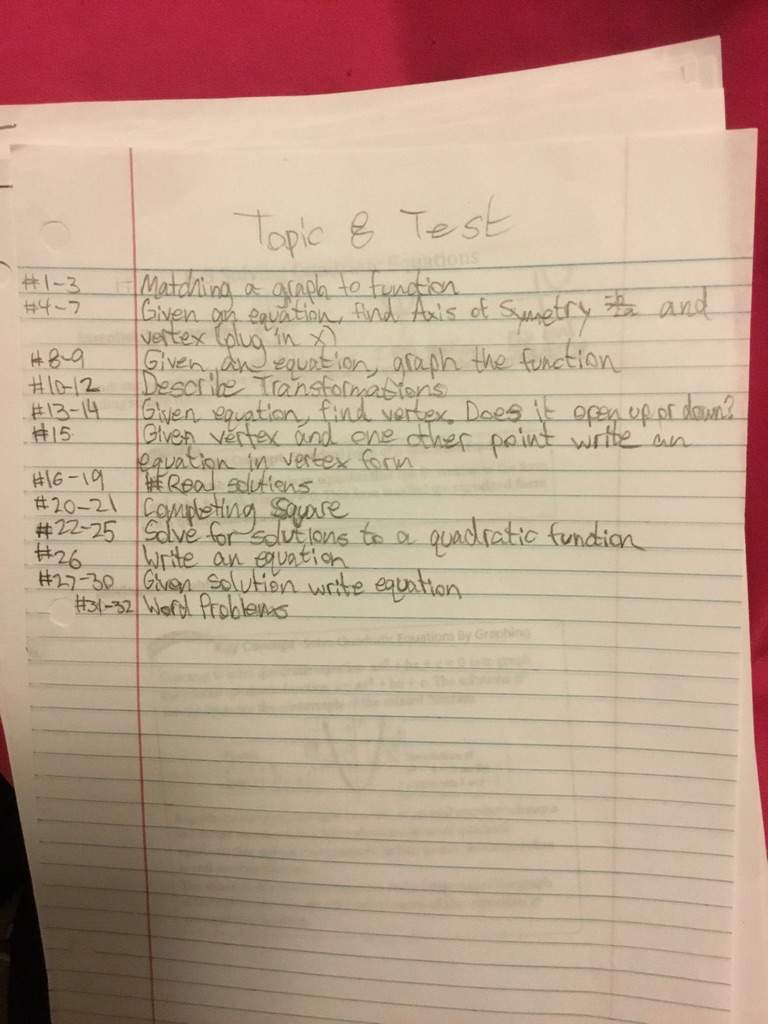 Topic 8 Test
#1-3 Matching a graph to function
#4-7 Given an equation, find Axis of Symetry -b/2a and
vertex (plug in x)
#8-9 Given an equation, graph the function
#10-12 Describe Transformations
#13-14 Given equation, find vertex. Does it open up or down?
#15 Given vertex and one other point write an
equation in vertex form
#16-19 # Real solutions
#20-21 Completing Square
#22-25 Solve for solutions to a quadratic function
#26 Write an equation
#27-30 Given solution write equation
#31-32 Word Problems
Key Concept Solve Quadratic Equations By Graphing